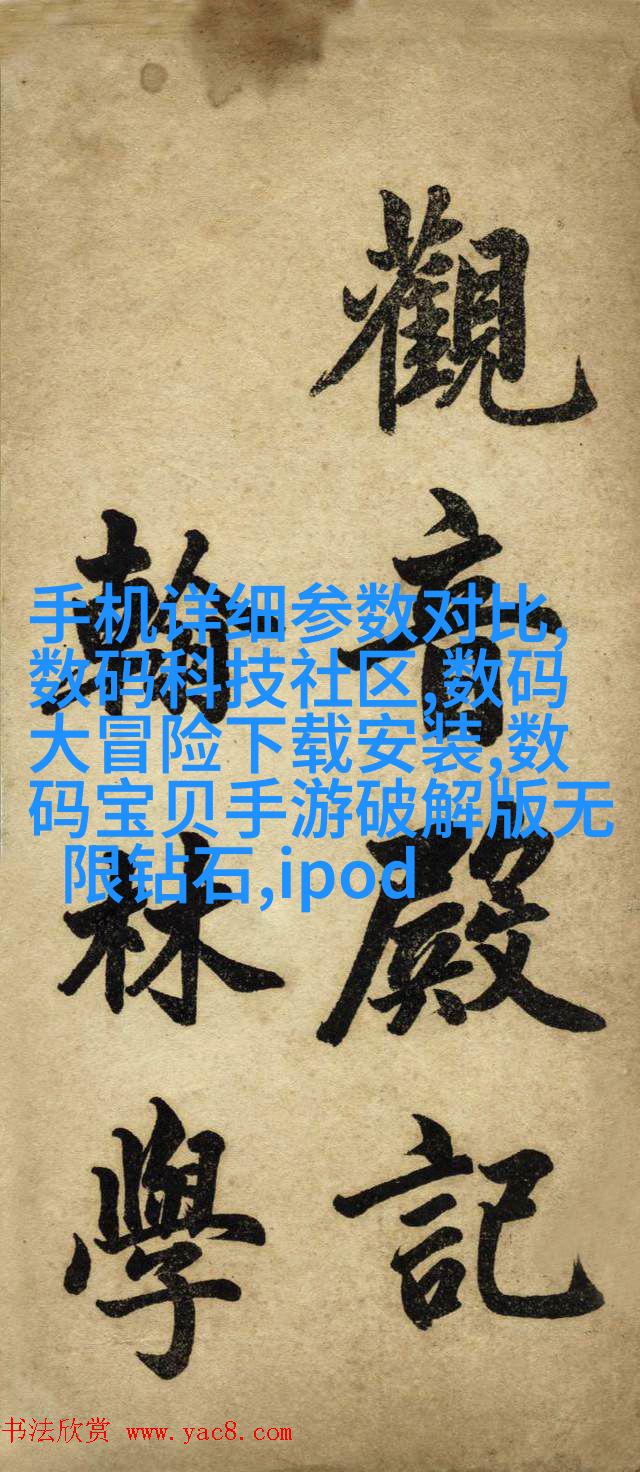 觀音殿記
翰林學
手机详细参数对比,
数码科技社区,数码
大冒险下载安装,数
码宝贝手游破解版无
限钻石,ipod
书法欣赏 www.yac8.com